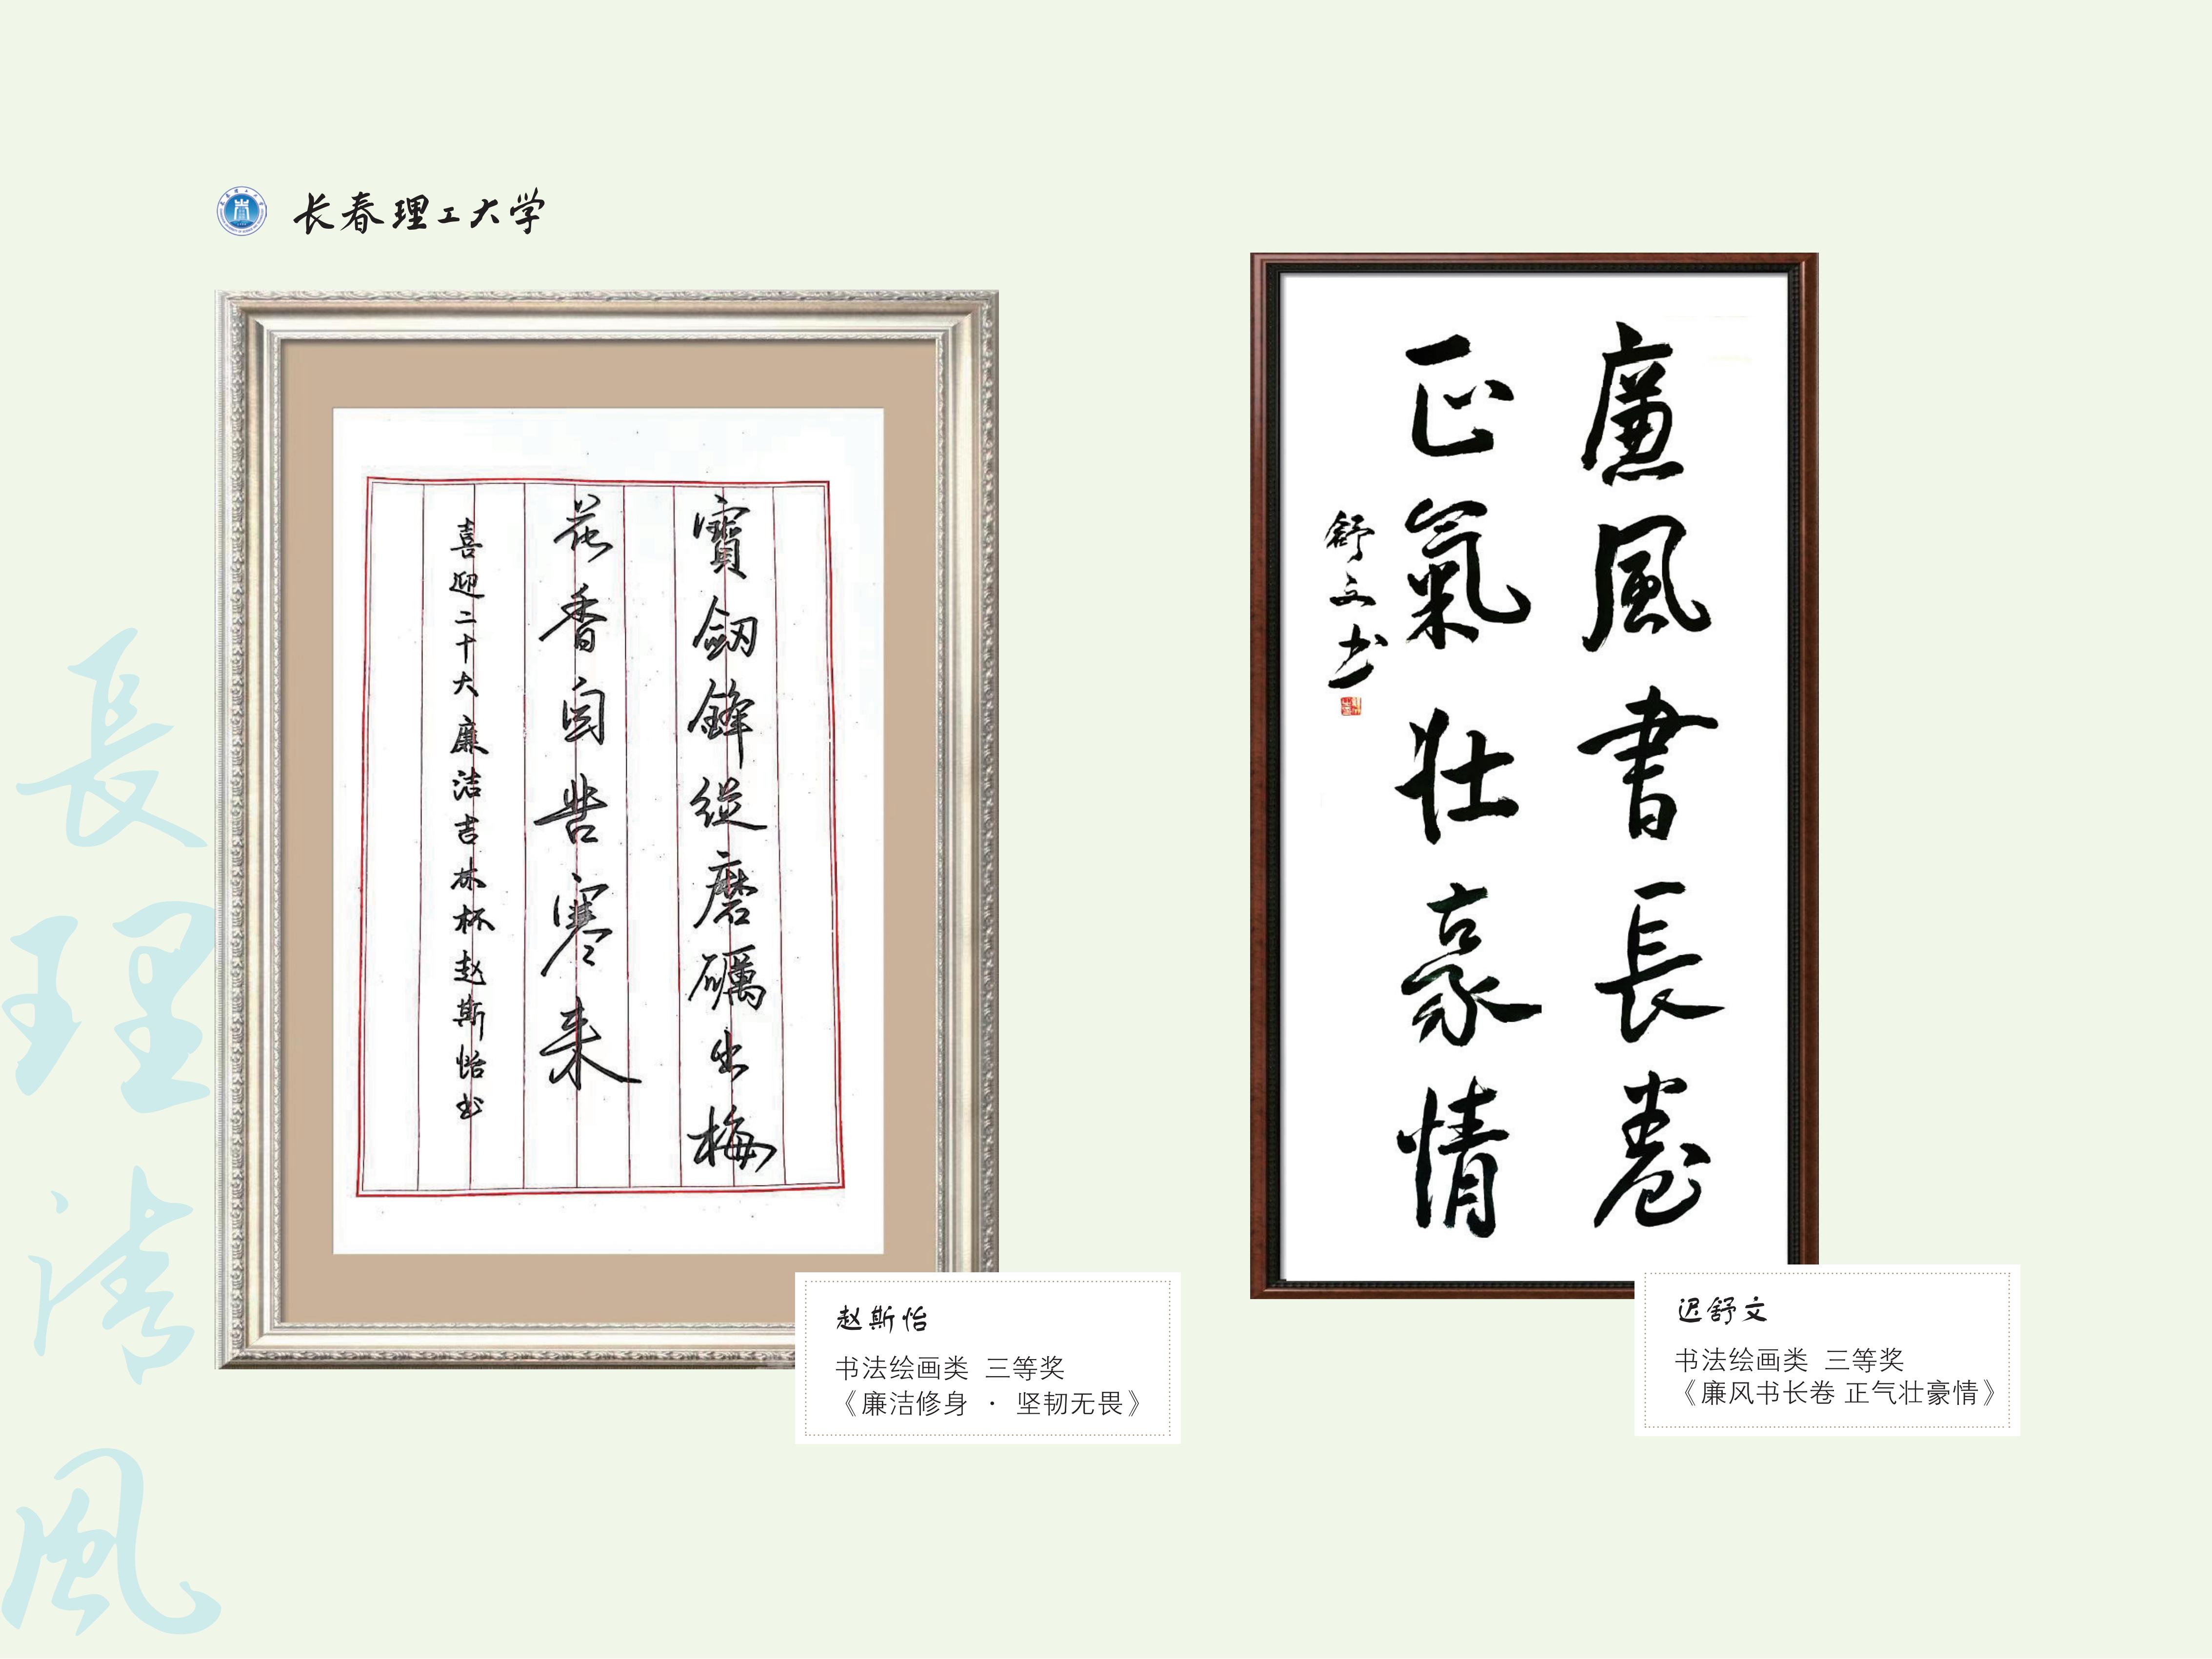 长春理工大学
寶劒鋒從磨礪出梅
花香自苦寒来
喜迎二十大廉洁吉林杯赵斯怡书
赵斯怡
书法绘画类 三等奖
《廉洁修身 · 坚韧无畏》
廉風書長卷
正氣壯豪情
舒文书
迟舒文
书法绘画类 三等奖
《廉风书长卷 正气壮豪情》
長理清風